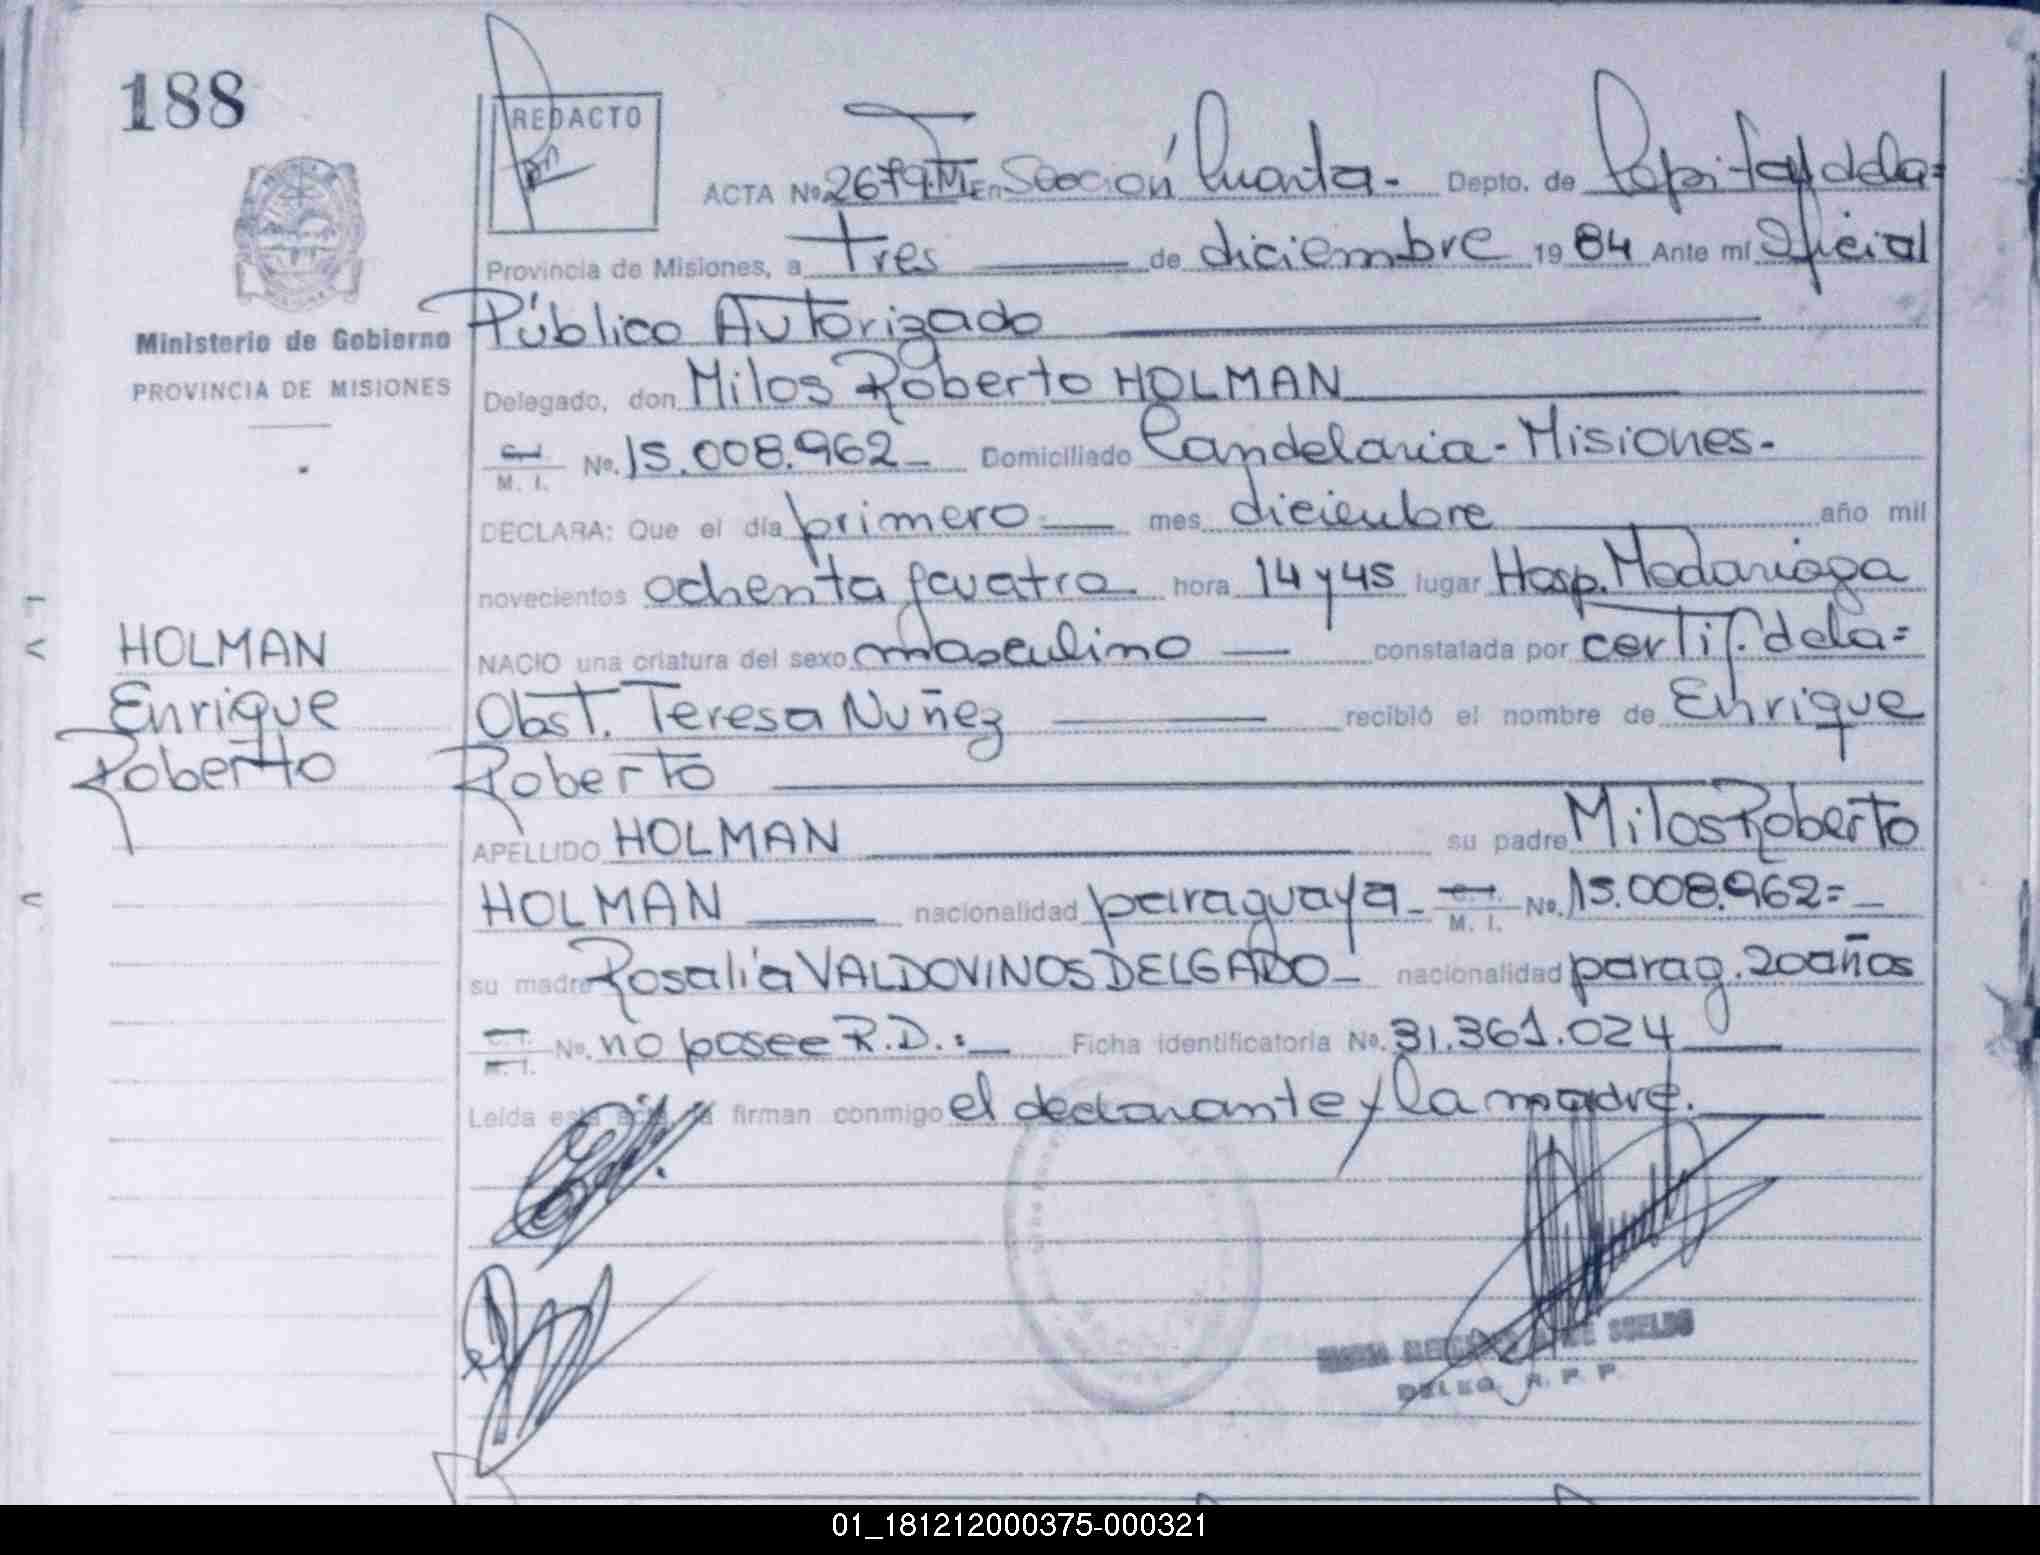 188
REDACTO
ACTA Nº 2679. En Sección Cuarta.- Depto. de Capital de la=
Provincia de Misiones, a Tres de diciembre 1984 Ante mí Oficial
Público Autorizado
Ministerio de Gobierno
PROVINCIA DE MISIONES
Delegado, don Milos Roberto HOLMAN
C.I.
M. I. Nº. 15.008.962- Domiciliado Candelaria-Misiones-
DECLARA: Que el día primero mes diciembre año mil
novecientos ochenta y cuatro. hora 14 y 45 lugar Hosp. Madariaga
NACIO una criatura del sexo masculino constatada por certif. de la=
Obst. Teresa Nuñez recibió el nombre de Enrique
Roberto
HOLMAN
Enrique
Roberto
APELLIDO HOLMAN su padre Milos Roberto
HOLMAN nacionalidad paraguaya- C.I.
M. I. Nº. 15.008.962=
su madre Rosalía VALDOVINOS DELGADO- nacionalidad parag. 20 años
C.I.
M. I. Nº. no posee R.D.: Ficha identificatoria Nº. 31.361.024
Leída esta acta la firman conmigo el declarante y la madre.
DE SUELDO
DELEG. R. P. P.
01_181212000375-000321